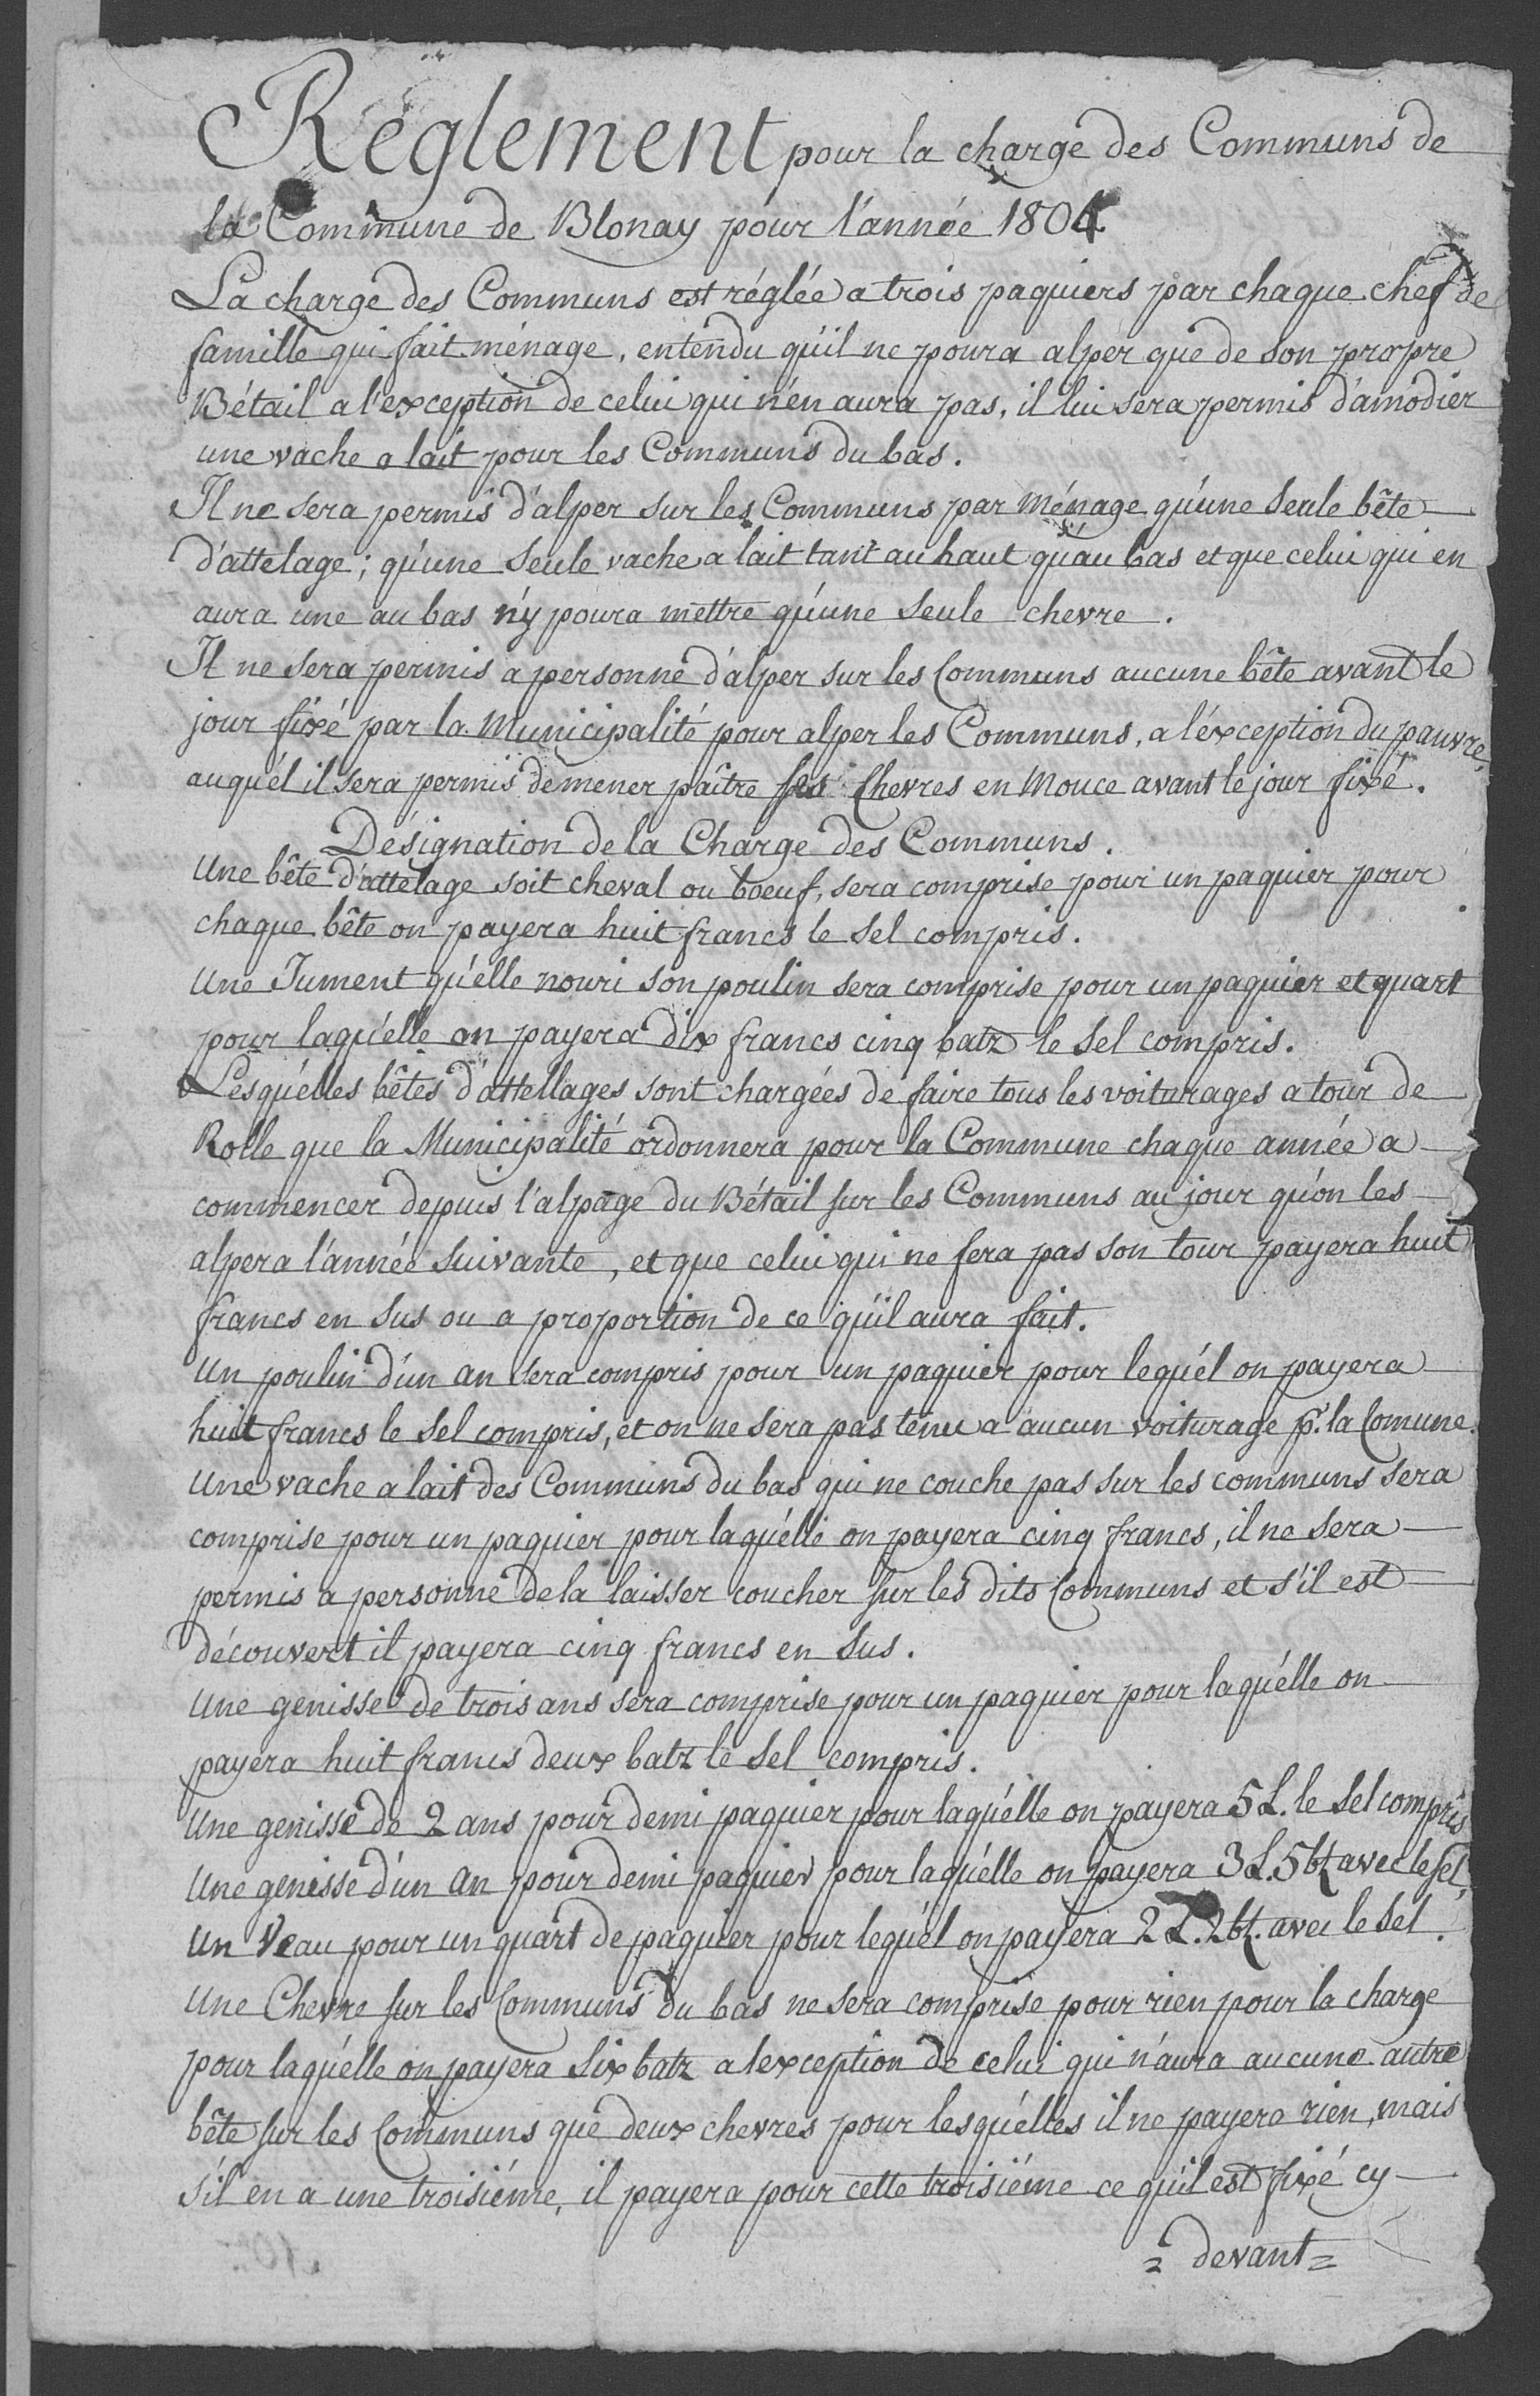 Réglement pour la charge des Communs de
la Commune de Blonay pour l'année 1804.
La charge des Communs est réglée a trois paquiers par chaque chef de
famille qui fait ménage, entendu qu'il ne poura alper que de son propre
Bétail a l'exception de celui qui n'én aura pas, il lui sera permis d'amodier
une vache a lait pour les Communs du bas.
Il ne sera permis d'alper sur les Communs par ménage qu'une seule bête
d'attelage; qu'une seule vache a lait tant au haut qu'au bas et que celui qui en
aura une au bas n'y poura mettre qu'une seule chevre.
Il ne sera permis a personne d'alper sur les Communs aucune bête avant le
jour fixé par la Municipalité pour alper les Communs, a l'éxception du pauvre,
auquél il sera permis de mener paître ses Chevres en Mouce avant le jour fixé.
Désignation de la Charge des Communs.
Une bête d'attelage soit cheval ou boeuf, sera comprise pour un paquier pour
chaque bête on payera huit francs le sel compris.
Une Jument qu'elle nouri son poulin sera comprise pour un paquier et quart
pour laquélle on payera dix francs cinq batz le sel compris.
Lesquélles bêtes d'attellages sont chargées de faire tous les voiturages a tour de
Rolle que la Municipalité ordonnera pour la Commune chaque année a
commencer depuis l'alpage du Bétail sur les Communs au jour qu'on les
alpera l'année suivante, et que celui qui ne fera pas son tour payera huit
francs en sus ou a proportion de ce qu'il aura fait.
Un poulin d'un an sera compris pour un paquier pour lequél on payera
huit francs le sel compris, et on ne sera pas tenu a aucun voiturage pr. la Comune.
Une vache a lait des Communs du bas qui ne couche pas sur les communs sera
comprise pour un paquier pour laquélle on payera cinq francs, il ne sera
permis a personne de la laisser coucher sur les dits Communs et s'il est
découvert il payera cinq francs en sus.
Une genisse de trois ans sera comprise pour un paquier pour laquélle on
payera huit francs deux batz le sel compris.
Une genisse de 2 ans pour demi paquier pour laquélle on payera 5 L. le sel compris
Une genisse d'un an pour demi paquier pour laquélle on payera 3 L. 5 bz avec le sel,
Un Veau pour un quart de paquier pour lequél on payera 2 L. 2 bz. avec le sel.
Une Chevre sur les Communs du bas ne sera comprise pour rien pour la charge
pour laquélle on payera six batz a lexception de celui qui n'aura aucune autre
bête sur les Communs que deux chevres pour lesquélles il ne payera rien, mais
s'il en a une troisiéme, il payera pour cette troisiéme ce qu'il est fixé cy
= devant =